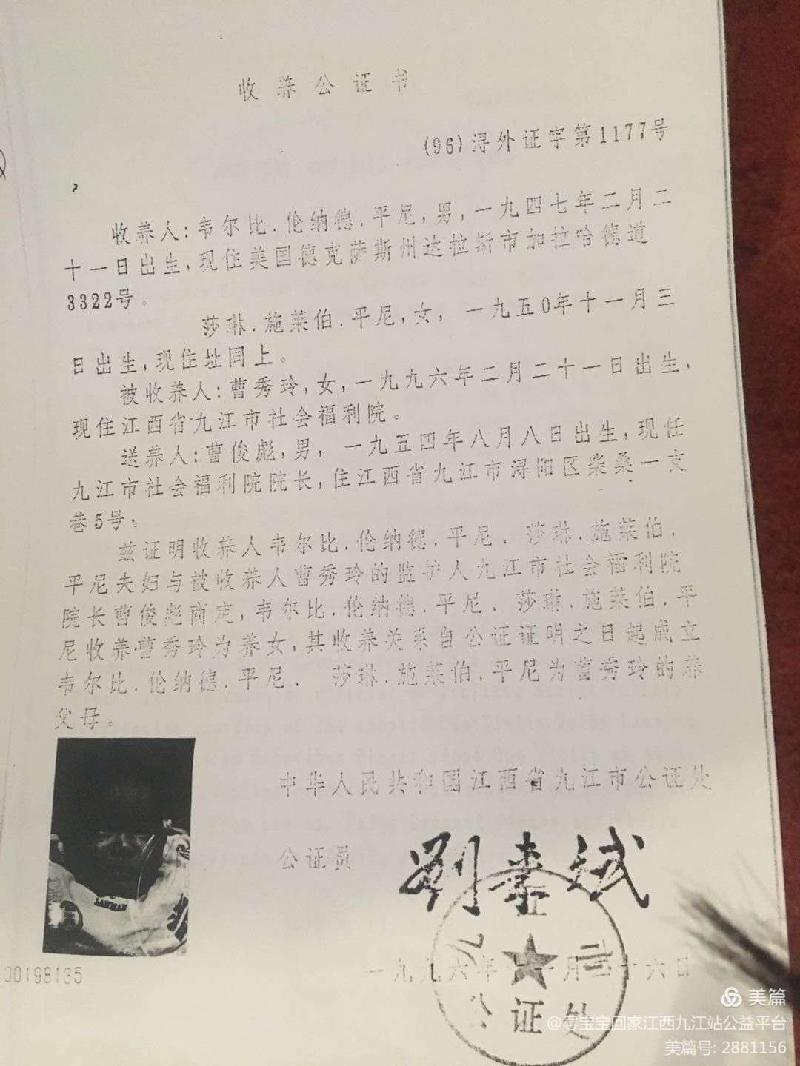 收养公证书
(96)浔外证字第1177号
收养人:韦尔比.伦纳德.平尼,男,一九四七年二月二
十一日出生,现住美国德克萨斯州达拉斯市加拉哈德道
3322号。
莎琳.施莱伯.平尼,女,一九五0年十一月三
日出生,现住址同上。
被收养人:曹秀玲,女,一九九六年二月二十一日出生,
现住江西省九江市社会福利院。
送养人:曹俊彪,男,一九五四年八月八日出生,现任
九江市社会福利院院长,住江西省九江市浔阳区柴桑一支
巷5号。
兹证明收养人韦尔比.伦纳德.平尼、莎琳.施莱伯.
平尼夫妇与被收养人曹秀玲的监护人九江市社会福利院
院长曹俊彪商定,韦尔比.伦纳德.平尼、莎琳.施莱伯.平
尼收养曹秀玲为养女,其收养关系自公证证明之日起成立
韦尔比.伦纳德.平尼、莎琳.施莱伯.平尼为曹秀玲的养
父母。
中华人民共和国江西省九江市公证处
公证员
公证处
一九九六年 月 十六日
00198135
美篇
@寻宝宝回家江西九江站公益平台
美篇号: 2881156